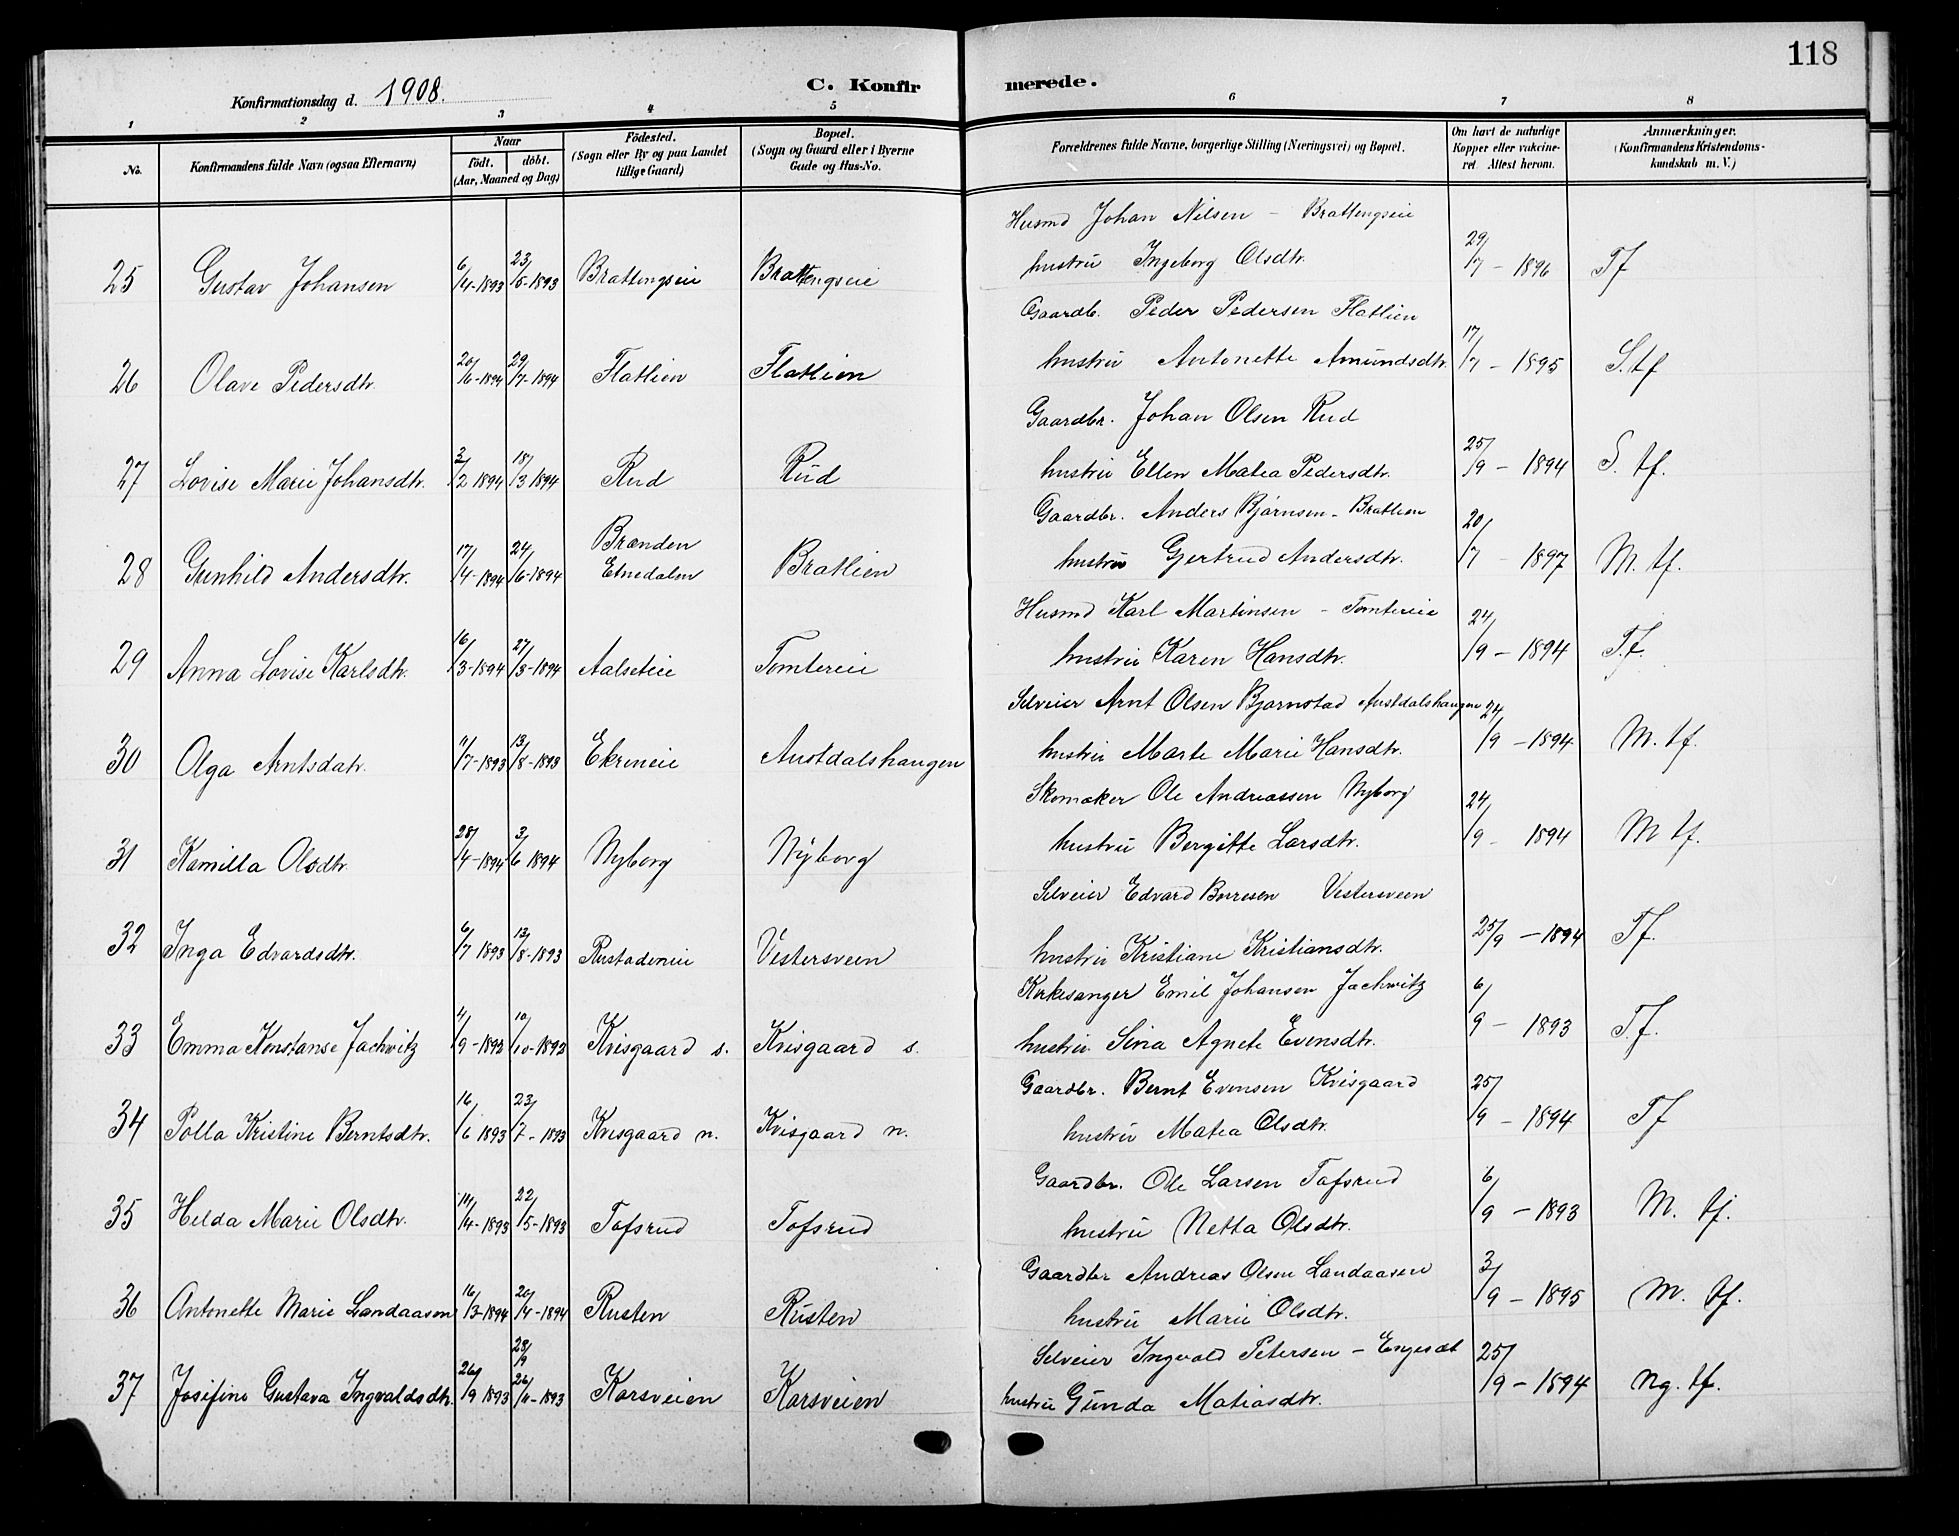 118
Konfirmationsdag d. 1908.
C. Konfirmerede.
1 2 3 4 5 6 7 8
No.
Konfirmandens fulde Navn (ogsaa Efternavn)
Naar
födt. döbt.
(Aar, Maaned og Dag)
Födested.
(Sogn eller By og paa Landet
tillige Gaard)
Bopæl.
(Sogn og Gaard eller i Byerne
Gade og Hus-No.
Forældrenes fulde Navne, borgerlige Stilling (Næringsvei) og Bopæl.
Om havt de naturlige
Kopper eller vakcine-
ret. Attest herom.
Anmærkninger.
(Konfirmandens Kristendoms-
kundskab m. V.)
Husmd Johan Nilsen – Brattengseie
25 Gustav Johansen 6/4-1893 23/5-1893 Brattengseie Brattengseie hustru Ingeborg Olsdtr. 29/7 – 1896 Tf
Gaardb. Peder Pedersen Flatlien
26 Olave Pedersdtr. 20/6-1894 29/7-1894 Flatlien Flatlien hustru Antonette Amundsdtr. 17/7 – 1895 S. tf
Gaardbr. Johan Olsen Rud
27 Lovise Marie Johansdtr. 2/2 1894 18/3 1894 Rud Rud hustru Ellen Matea Pedersdtr. 25/9 – 1894 S. tf.
Gaardbr. Anders Bjørnsen – Bratlien
28 Gunhild Andersdtr. 17/4-1894 24/6-1894 Brænden
Etnedalen Bratlien hustru Gjertrud Andersdtr. 20/7 – 1897 M. tf.
Husmd Karl Martinsen – Tomtereie
29 Anna Lovise Karlsdtr. 16/3-1894 27/3-1894 Aalseteie Tomtereie hustru Karen Hansdtr. 24/9 – 1894 T.f.
Selveier Arnt Olsen Bjørnstad Austdalshaugen
30 Olga Arntsdatr. 11/7-1893 13/8-1893 Ekreneie Austdalshaugen hustru Marte Marie Hansdtr. 24/9 – 1894 M. tf.
Skomaker Ole Andreassen Nyborg
31 Kamilla Olsdtr. 28/4-1894 3/6 1894 Nyborg Nyborg hustru Bergitte Larsdtr. 24/9 – 1894 M tf.
Selveier Edvard Borresen Vestersveen
32 Inga Edvardsdtr. 6/7 1893 13/8-1893 Rustadeneie Vestersveen hustru Kristiane Kristiansdtr. 25/9 – 1894 Tf.
Kirkesanger Emil Johansen Jachwitz
33 Emma Konstanse Jachwitz 4/9-1892 10/10-1893 Kvisgaard s. Kvisgaard s. hustru Sina Agnete Evensdtr. 6/9 – 1893 T.f.
Gaardbr. Bernt Evensen Kvisgaard
34 Polla Kristine Berntsdtr. 16/6 1893 23/7-1893 Kvisgaard n. Kvisgaard n. hustru Matea Olsdtr. 25/9 – 1894 Tf
Gaardbr. Ole Larsen Tofsrud
35 Helda Marie Olsdtr. 14/4-1893 22/5-1893 Tofsrud Tofsrud hustru Netta Olsdtr. 6/9 – 1893 M. tf.
Gaardbr Andreas Olsen Landaasen
36 Antonette Marie Landaasen 16/3-1894 20/4-1894 Rusten Rusten hustru Marie Olsdtr. 3/9 – 1895 M. tf.
Selveier Ingvald Petersen – Engesdt
37 Josefine Gustava Ingvaldsdtr. 26/9 1893 28/9 26/11-1893 Korsveien Korsveien hustru Gunda Matiasdtr. 25/9 – 1894 Ng. tf.